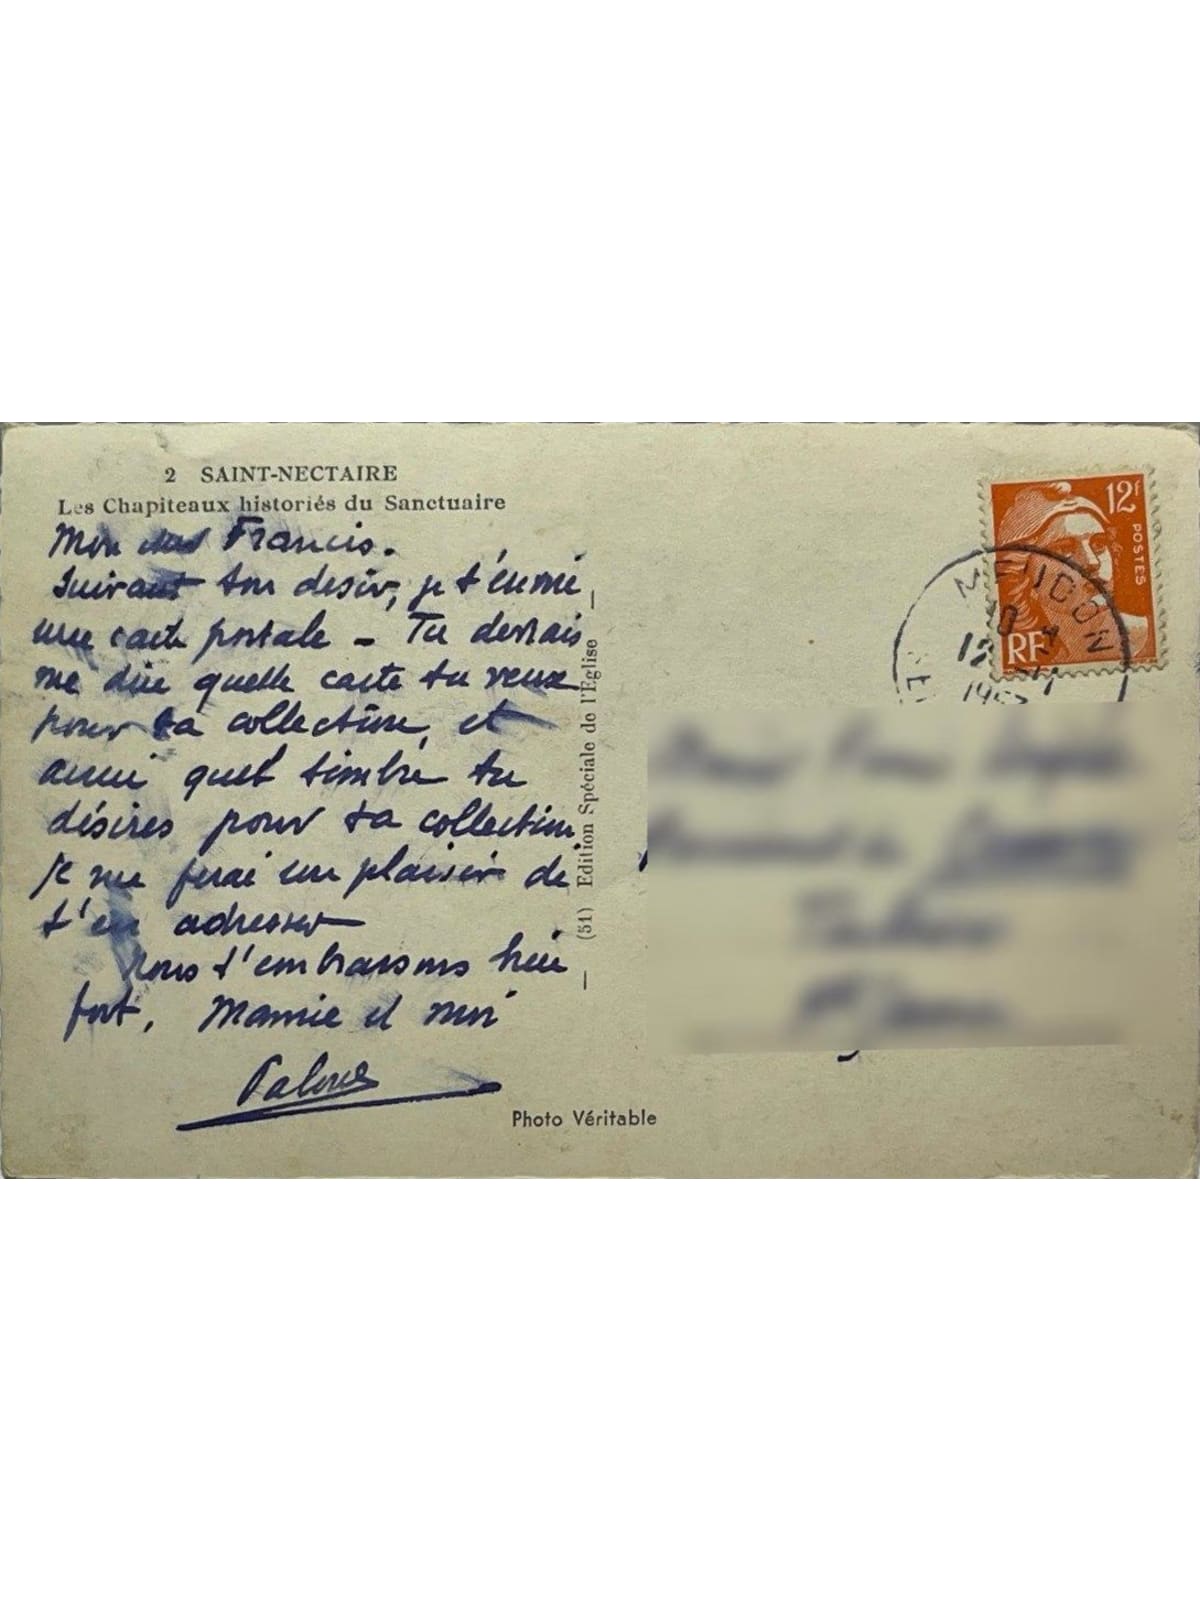 2 SAINT-NECTAIRE
Les Chapiteaux historiés du Sanctuaire
Mon Francis.
Suivant ton desir, je t'envoie
une carte postale - Tu devrais
me dire quelle carte tu veux
pour ta collection, et
aussi quel timbre tu
désires pour ta collection
je me ferai un plaisir de
t'en adresser
Nous t'embrassons bien
fort, Mamie et moi
(51) Edition Spéciale de l'Eglise
Photo Véritable
12f
POSTES
RF
MEUDON